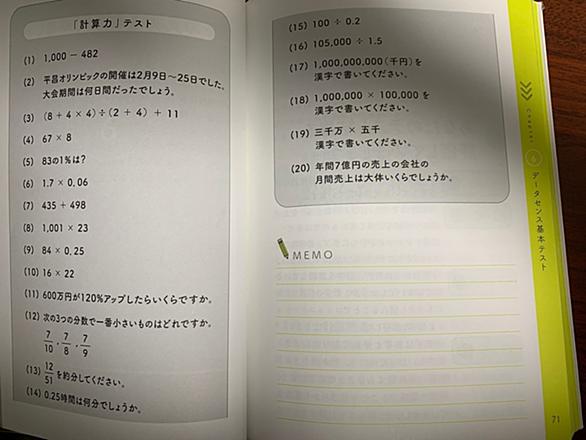 「計算力」テスト
(1) 1,000 − 482
(2) 平昌オリンピックの開催は2月9日〜25日でした。
大会期間は何日間だったでしょう。
(3) (8 + 4 × 4) ÷ (2 + 4) + 11
(4) 67 × 8
(5) 83の1%は?
(6) 1.7 × 0.06
(7) 435 + 498
(8) 1,001 × 23
(9) 84 × 0.25
(10) 16 × 22
(11) 600万円が120%アップしたらいくらですか。
(12) 次の3つの分数で一番小さいものはどれですか。
7/10 , 7/8 , 7/9
(13) 12/51 を約分してください。
(14) 0.25時間は何分でしょうか。
(15) 100 ÷ 0.2
(16) 105,000 ÷ 1.5
(17) 1,000,000,000(千円)を
漢字で書いてください。
(18) 1,000,000 × 100,000 を
漢字で書いてください。
(19) 三千万 × 五千
漢字で書いてください。
(20) 年間7億円の売上の会社の
月間売上は大体いくらでしょうか。
MEMO
Chapter
6
データセンス基本テスト
71